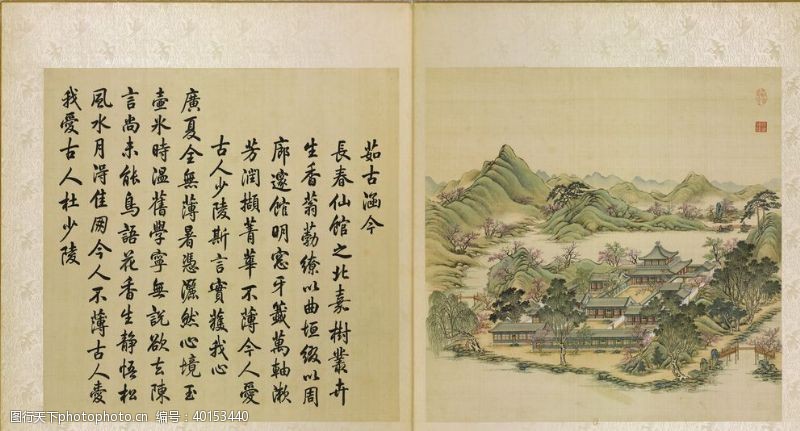 茹古涵今
長春仙館之北嘉樹叢卉
生香蓊勃繚以曲垣綴以周
廊邃館明窓牙籤萬軸漱
芳潤擷菁華不薄今人愛
古人少陵斯言實獲我心
廣夏全無薄暑憑灑然心境玉
壺氷時温舊學寧無說欲去陳
言尚未能鳥語花香生靜悟松
風水月淂佳朋今人不薄古人愛
我愛古人杜少陵
图行天下photophoto.cn 编号：40153440